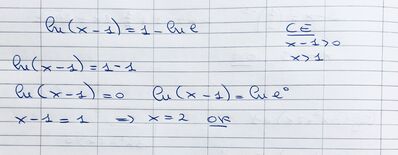 ln(x-1)=1-ln e
CE
x-1>0
x>1
ln(x-1)=1-1
ln(x-1)=0 ln(x-1)=ln e⁰
x-1=1 => x=2 OK